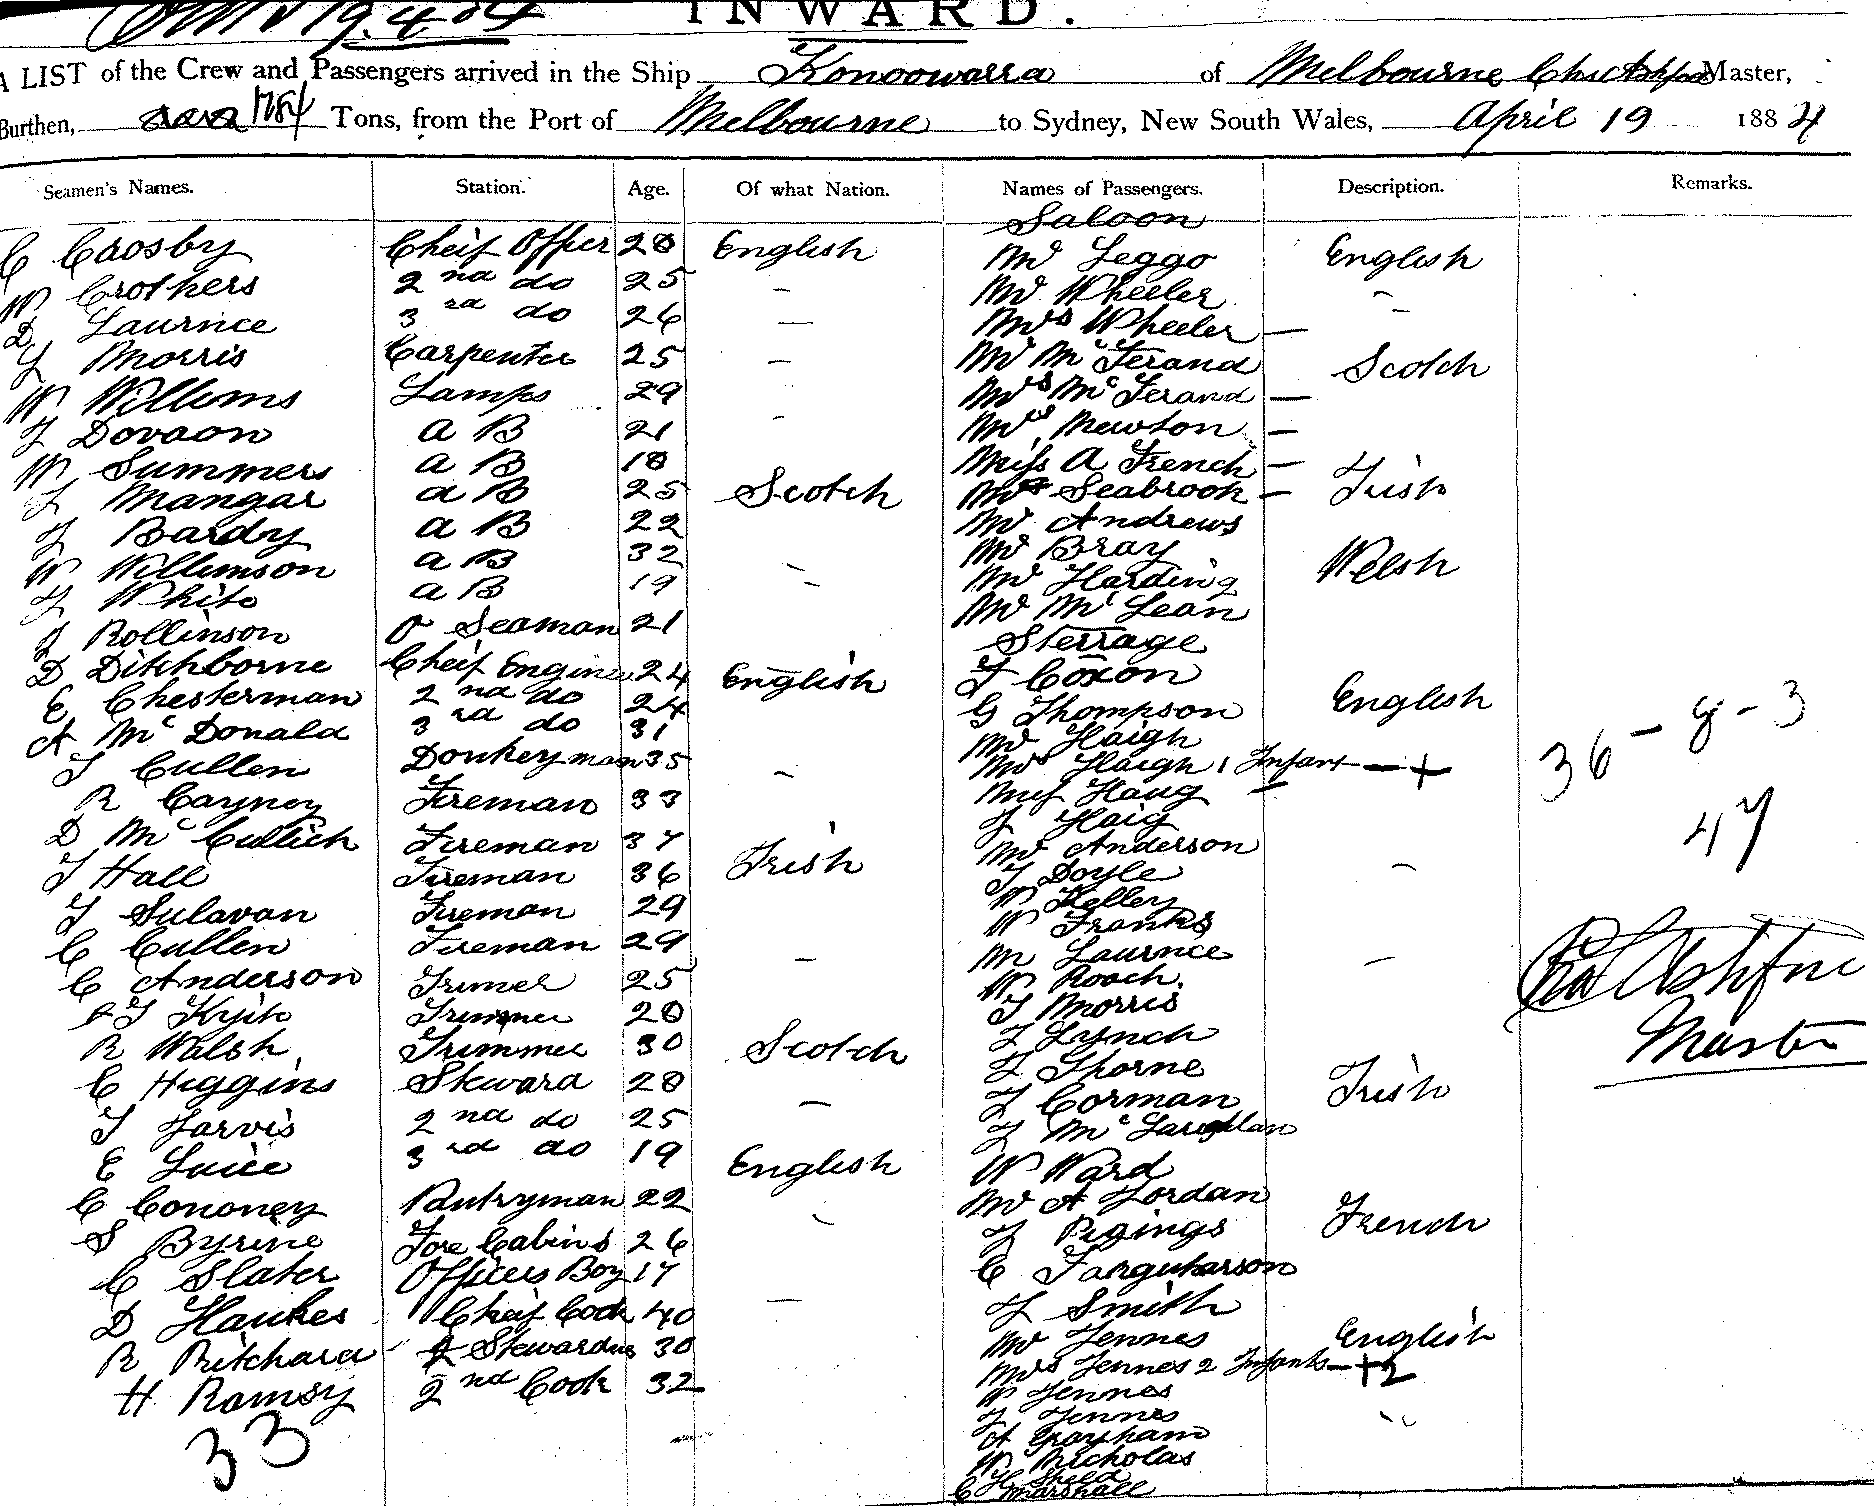 19.4.84 INWARD.
A LIST of the Crew and Passengers arrived in the Ship Konoowarra of Melbourne Chas Ashford Master,
Burthen, 1784 Tons, from the Port of Melbourne to Sydney, New South Wales, April 19 1884
Seamen's Names. Station. Age. Of what Nation. Names of Passengers. Description. Remarks.
Saloon
C Crosby Cheif Offier 28 English Mr Leggo English
W Crothers 2nd do 25 – Mr Wheeler –
D Laurnce 3rd do 26 — Mrs Wheeler —
J Morris Carpenter 25 – Mr McFerand Scotch
W Willims Lamps 29 Mrs McFerand —
J Dovaon a B 21 – Mewton —
W Summers a B 18 Miss A French —
J Mangar a B 25 Scotch Seabrook – Irish
J Bardy a B 22 Mr Andrews
W Willimson a B 32 – Mr Bray Welsh
J White a B 19 – Mr Harding
Mr McLean
J Rollinson O Seaman 21 Sterrage
D Ditchborne Cheif Engine 24 English J Coxon
E Chesterman 2nd do 24 G Thompson English
A McDonald 3rd do 31 Mr Haigh 36 - 8 - 3
J Cullen Donkeyman 35 – Mrs Haigh 1 Infant — +
R Cayney Fireman 33 Miss Haug
J Haig 47
D McCullich Fireman 37 Mr Anderson
J Hall Fireman 36 Irish J Doyle –
W Kelley
J Sulavan Fireman 29 W Franks
C Cullen Fireman 29 – M Laurnce –
C Anderson Trimer 25 W Roach Chas Ashford
J Kyite Trimmer 20 J Morris
R Walsh Trimmer 30 Scotch J Lynch Master
C Higgins Steward 28 J Thorne Irish
J Jarvis 2nd do 25 – J Corman
J McLaughlan
E Luice 3rd do 19 English W Ward
C Cononey Pantryman 22 – Mr A Jordan
S Byrine Fore Cabins 26 J Pigings French
C Slater Officers Boy 17 C Farguharson
D Haukes Cheif Cook 40 — J Smith
R Ritchard Stewardess 30 Mr Jennes English
Mrs Jennes 2 Infants — +2
H Ramsy 2nd Cook 32 W Jennes
33 J Jennes "
A Grayham
W Nicholas
Sheild
C Marshall